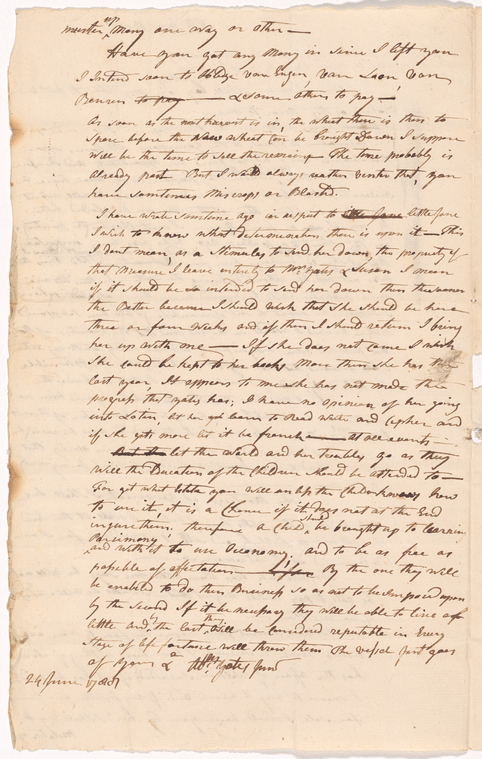 muster up Mony one way or other —
Have you got any Mony in since I left you
I Intend soon to Oblidge van Eugen, van Loon, van
Benren to pay — & some others to pay —
As soon as the next harvest is in, the wheat there is then to
Spare before the New wheat Can be brought Down I suppose
will be the time to sell the remaing — The time probably is
already past But I would always rather venter that, you
have somtimes Miscrops or Blastd.
I have wrote somtime ago in respect to little Jane
I wish to know what determination there is upon it — This
I dont mean as a Stimulus to send her down, the propriety of
that Measure I leave intirely to Mrs Yates & Susan I mean
if it should be so intended to send her down then the sooner
the Better because I should wish that she should be here
three or four weeks and if then I should return I bring
her up with me — If she does not come I wish
She could be kept to her books More then she has the
last year, It appears to me she has not made the
progress that yates has; I have no Opinion of her going
into Latin, let her get learn to Read write and Cypher and
if she gets more let it be french — At all events
But the let the World and her troubles go as they
Will the Education of the Children should be attended to —
For get what Estate you will unless the Children know how
to use it, it is a Chance if it does not at the End
ingure them. therefore a Child should be brought up to learn
Parsimony,
and with it to use Oeconomy, and to be as free as
possible of affectation — By the one they will
be enabled to do their Business so as not to be Imposed upon
by the Second If it be necessary they will be able to live on
little and the last they will be Considered reputable in Every
Stage of life fortune will throw them The vessel just goes
of Yours &a Abm Yates Junr
24 June